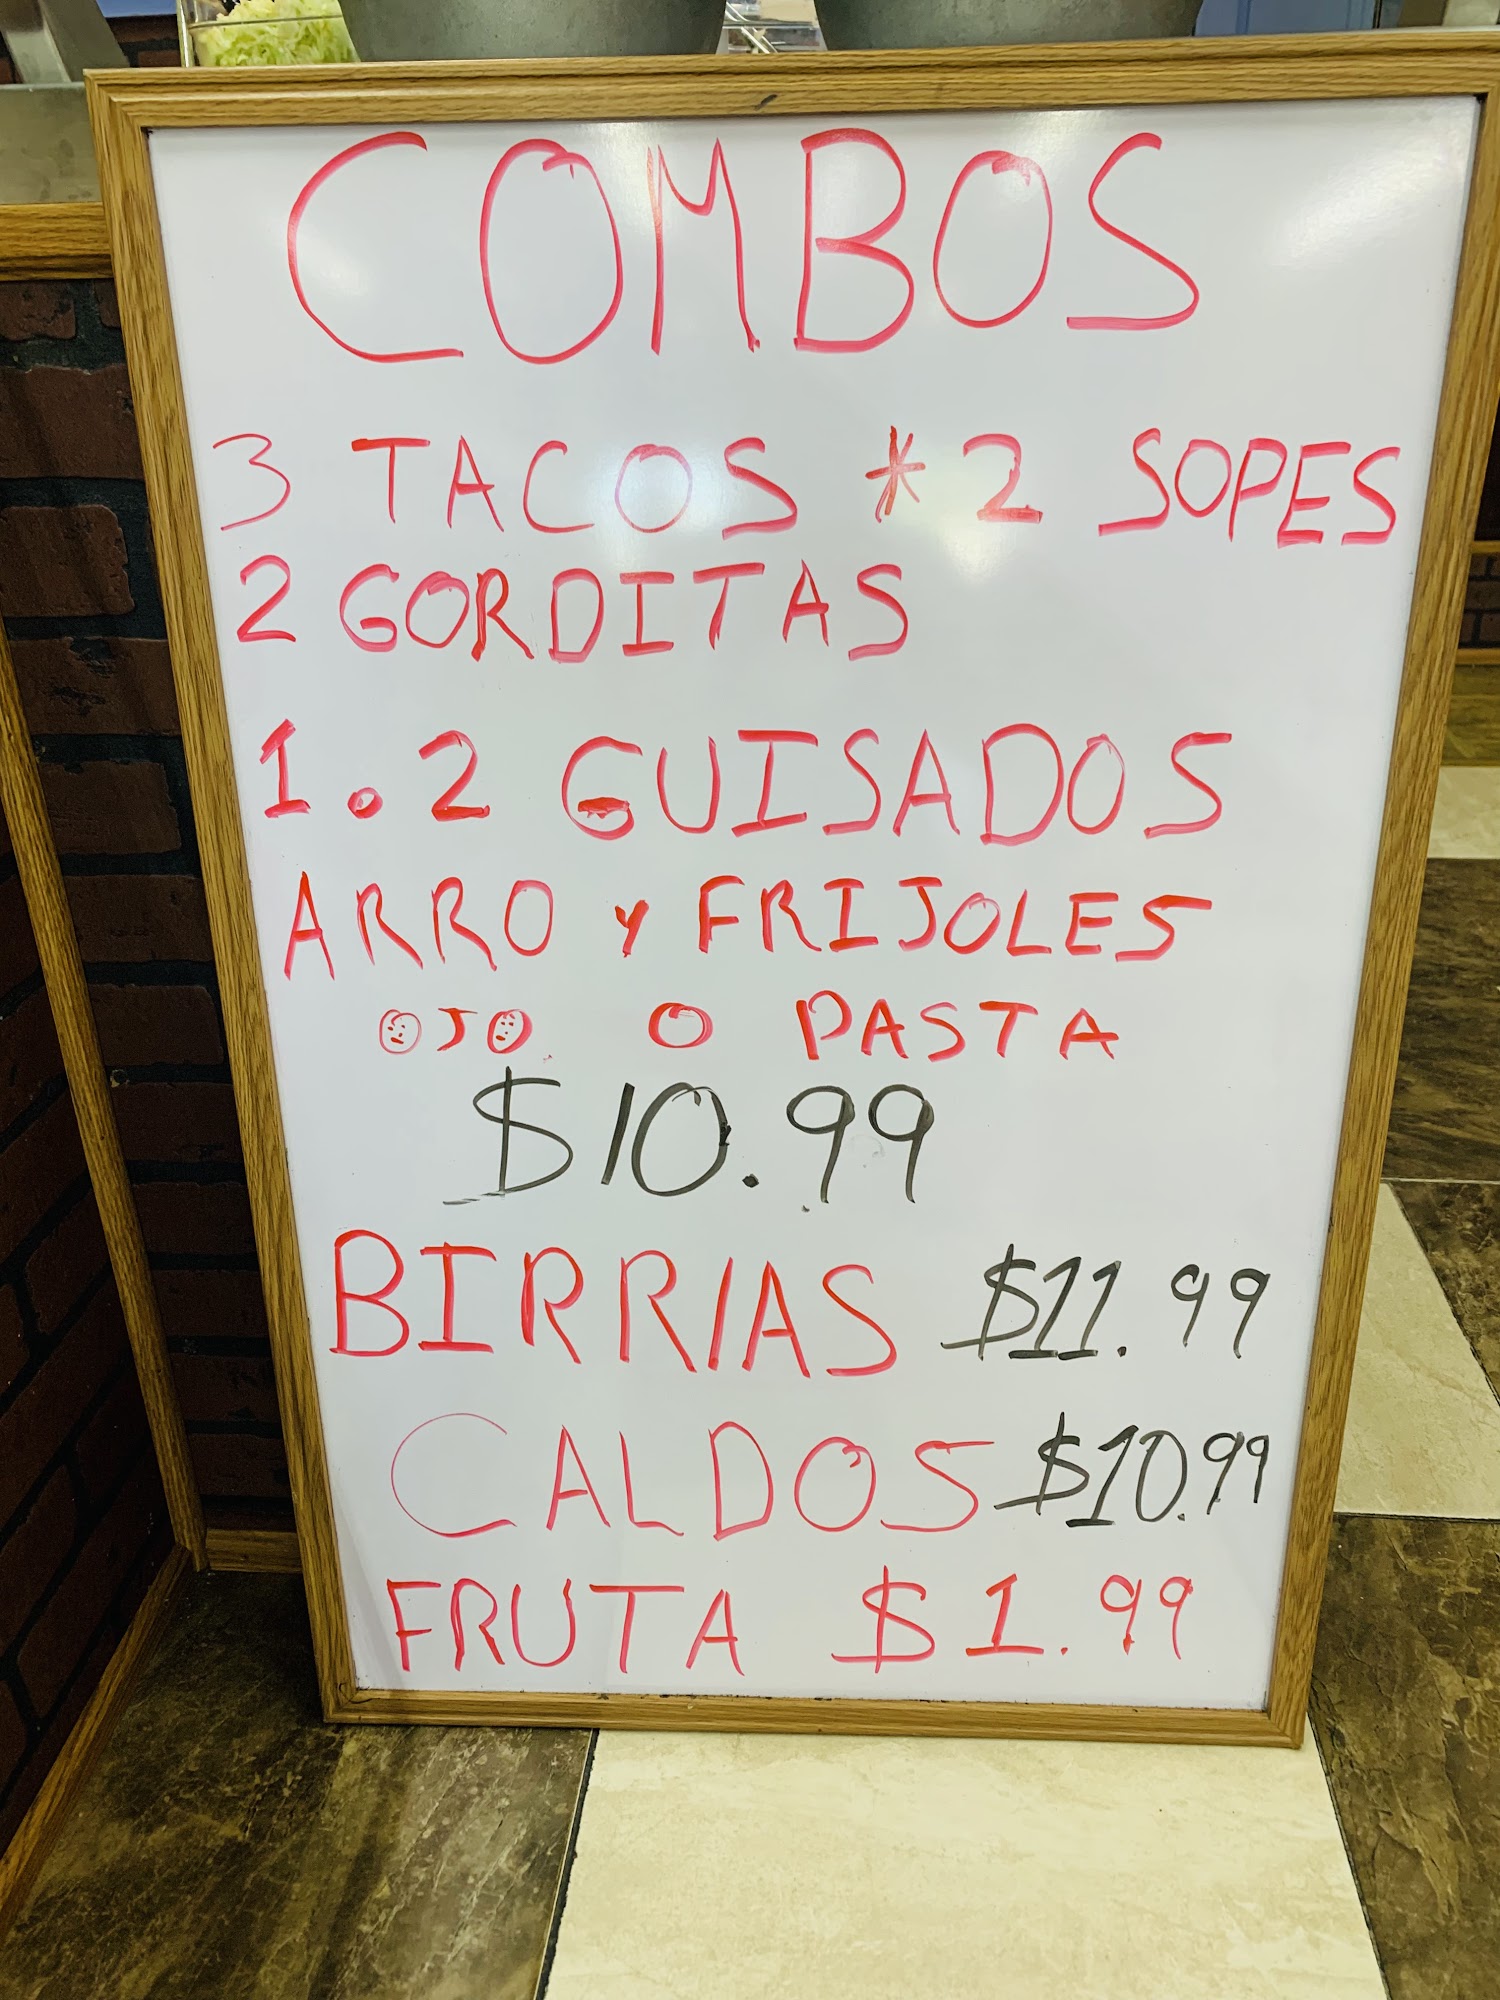 COMBOS
3 TACOS * 2 SOPES
2 GORDITAS
1.2 GUISADOS
ARRO Y FRIJOLES
OJO O PASTA
$10.99
BIRRIAS $11.99
CALDOS $10.99
FRUTA $1.99